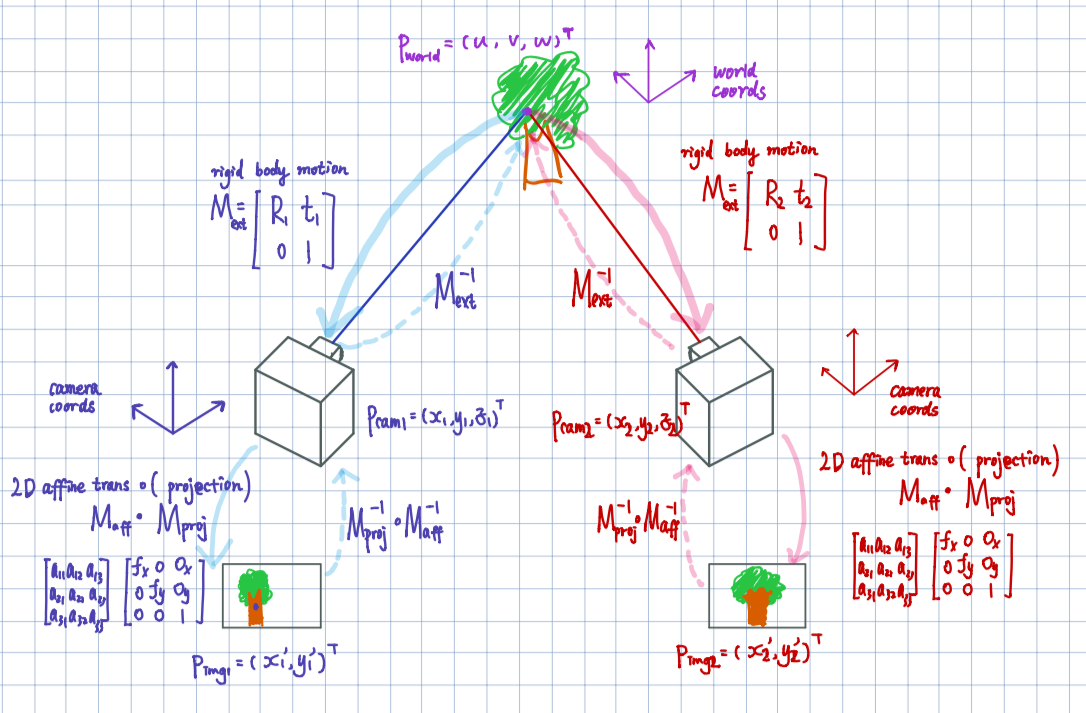 P_world = (u, v, w)^T
world
coords
rigid body motion
M_ext = [R₁ t₁
0 1]
rigid body motion
M_ext = [R₂ t₂
0 1]
M_ext^-1
M_ext^-1
camera
coords
P_cam1 = (x₁, y₁, z₁)^T
P_cam2 = (x₂, y₂, z₂)^T
camera
coords
2D affine trans ∘ (projection)
M_aff · M_proj
[a₁₁ a₁₂ a₁₃] [f_x 0 O_x]
[a₂₁ a₂₂ a₂₃] [0 f_y O_y]
[a₃₁ a₃₂ a₃₃] [0 0 1]
M_proj^-1 ∘ M_aff^-1
M_proj^-1 · M_aff^-1
2D affine trans ∘ (projection)
M_aff · M_proj
[a₁₁ a₁₂ a₁₃] [f_x 0 O_x]
[a₂₁ a₂₂ a₂₃] [0 f_y O_y]
[a₃₁ a₃₂ a₃₃] [0 0 1]
P_img1 = (x₁', y₁')^T
P_img2 = (x₂', y₂')^T